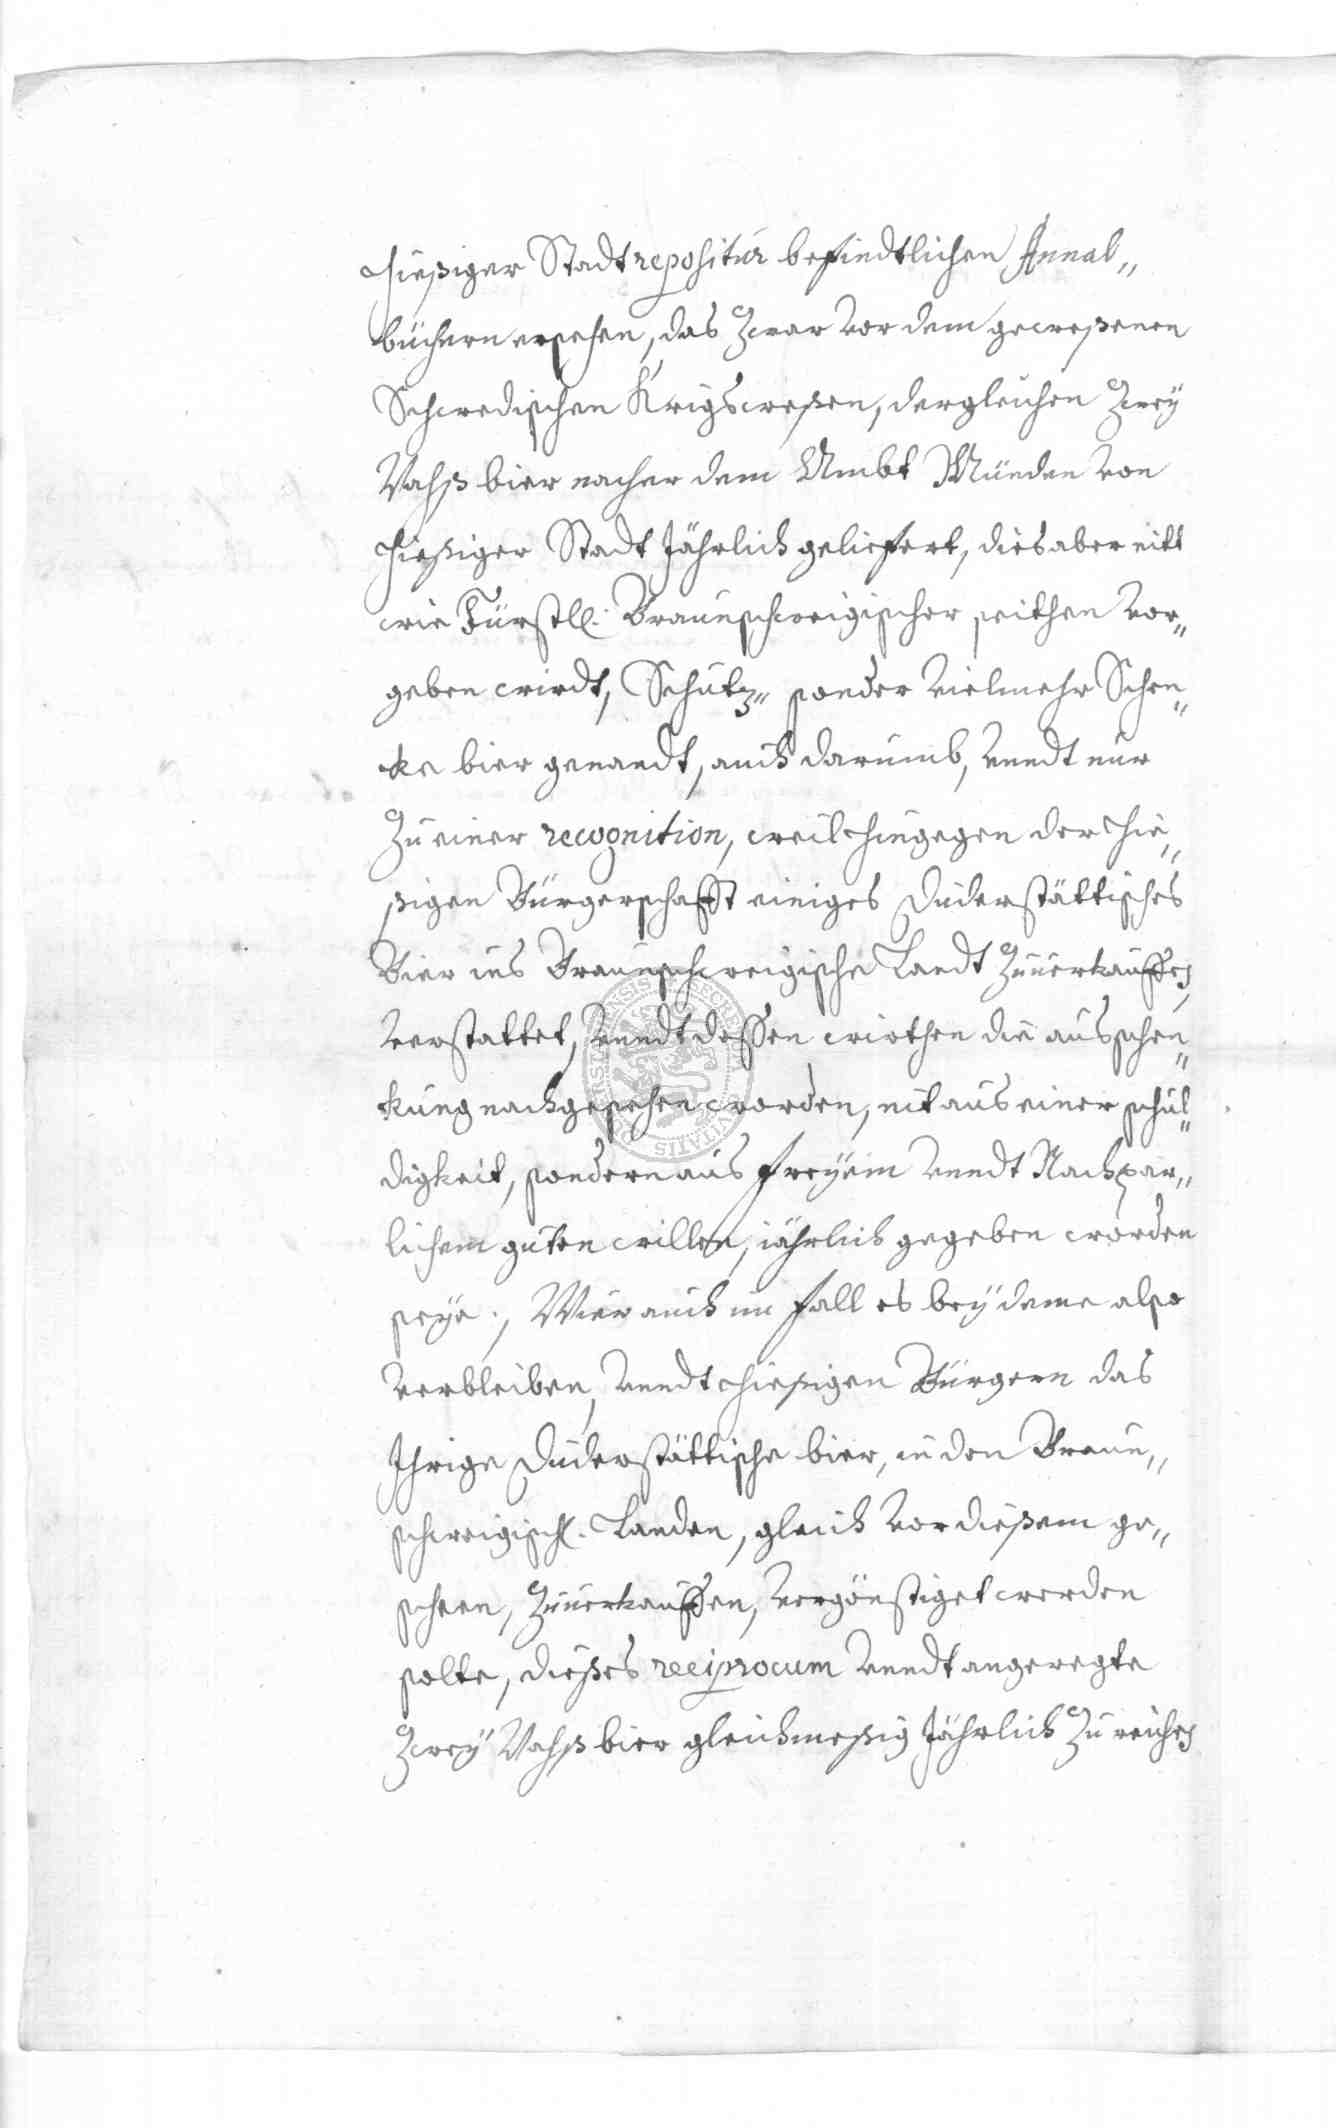 hießiger Stadtrepositur befindtlichen Annal„
büchern ersehen, das Zwar vor dem geweßenen
Schwedischen Krigsweßen, dergleichen Zwey
Vahß bier nacher dem Ambt Münden von
hießiger Stadt Jährlich geliefert, dies aber nitt
wie Fürstl. Braunschweigischer seithen vor„
geben wirdt, Schutz„ sonder vielmehr Schen„
ke bier genandt, auch darumb, vnndt nur
Zu einer recognition, weil hingegen der hie„
sigen Bürgerschafft einiges Duderstättisches
Bier ins Braunschweigische Landt Zuuerkauffen
verstattet, vnndt dessen wirthen die ausschen„
kung nachgesehen worden, nit aus einer schul„
digkeit, sondern aus freyem vnndt Nachpar„
lichem guten willen, jährlich gegeben worden
seye., Wier auch im fall es bey deme also
verbleiben, vnndt hiesigen Bürgern das
Ihrige Duderstättische bier, in den Braun„
schweigisch. Landen, gleich vor dießem ge„
scheen, Zuuerkauffen, vergönstiget werden
solte, dießes reciprocum vnndt angeregte
Zwey Vahß bier gleichmeßig Jährlich Zu reichen